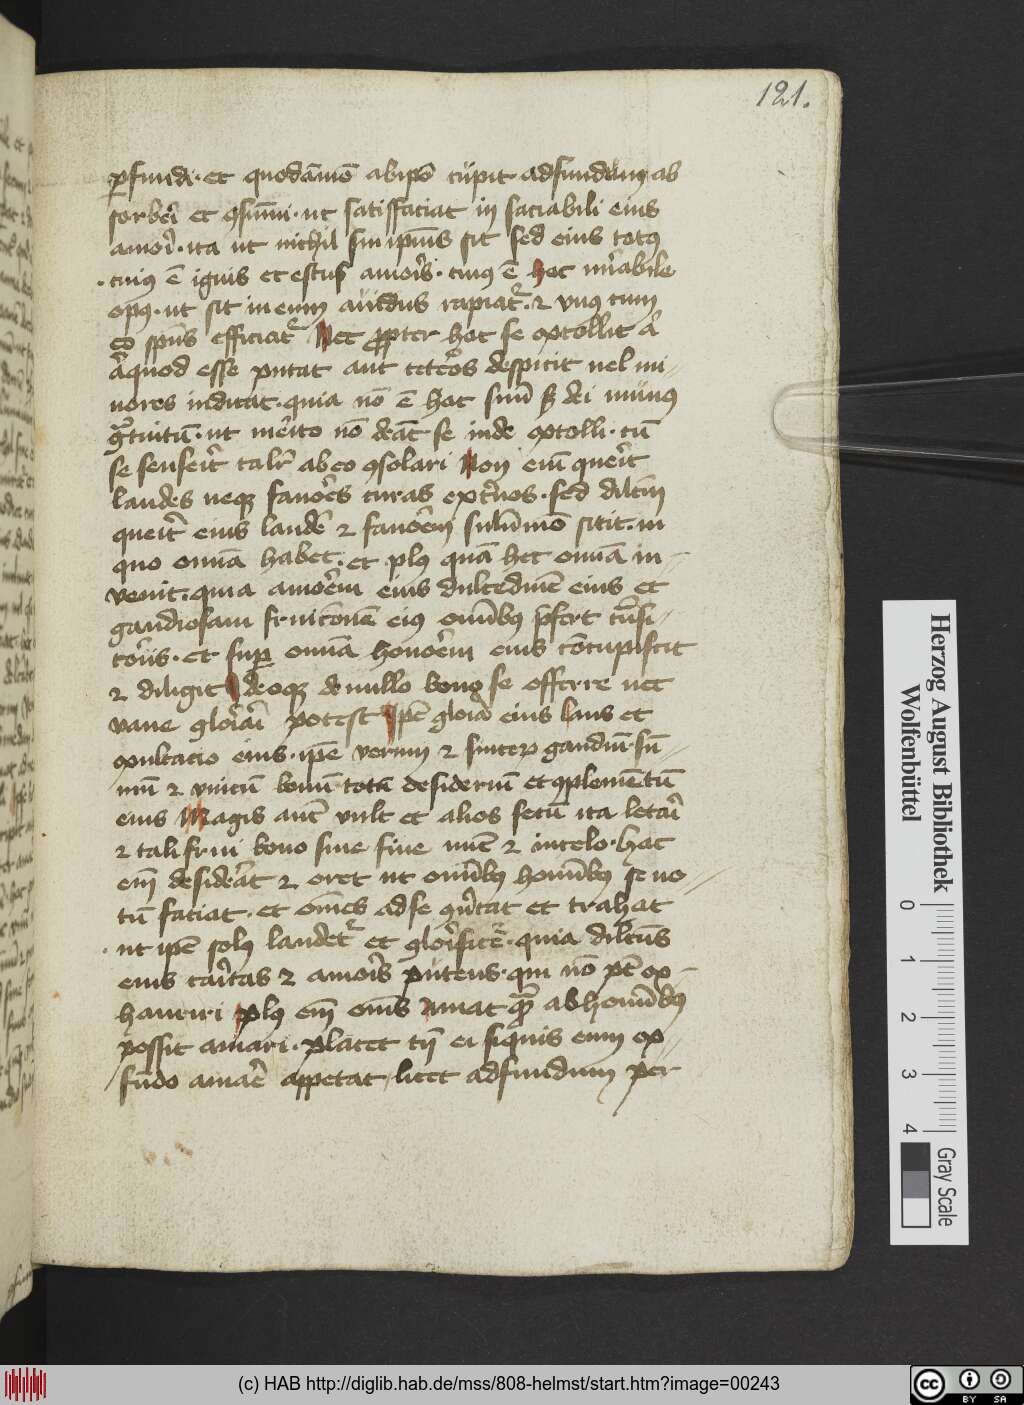 121.
ꝑfundi · et quodāmō abipō cupit adfundum ab
sorberi et ꝯsumi · ut satisfaciat in saciabili eius
amori · ita ut nichil sui ipius sit sed eius totus
cuius ē ignis et estus amoris · cuius ē hoc mirabile
opus · ut sit in eum auidus rapiatr · ⁊ vnus cum
eo spūs efficiatr Nec propter hoc se extollit
aliquod esse putat aut ceteros despicit uel mi-
nores iudicat · quia nō ē hoc suū sed dei munus
gratuitū · ut merito nō debeat se inde extolli · cū
se senserit talit ab eo ꝯsolari Non enim querit
laudes neqꝫ fauores curas externos · sed dilcm
querit eius laudē ⁊ fauorem sitit · in
quo omia habet · et plus quā hec omia in-
venit · quia amorem eius dulcedinē eius et
gaudiosam fruicionē eius omibus tnsi-
toriis · et super omia honorem eius concupiscit
⁊ diligit Ideoqꝫ de nullo bono se offerre nec
vane gloriari potest Ipē gloria eius laus et
exultacio eius · ipē verum ⁊ sincerum gaudiū · sū-
mū ⁊ vnicū bonū totū desideriū et ꝯplementū
eius Magis aut vult et alios secū ita letari
⁊ tali frui bono sine fine nunc ⁊ in celo · hac
enim desiderat ⁊ oret ut omibus hominibus se no-
tū faciat · et omes ad se ꝯuertat et trahat
ut ipē solus laudetr et glorificetr · quia dilctus
eius caritas ⁊ amoris puteus · qui nō pt ex-
hauriri Plus enim omis amat quam ab hominibus
possit amari · placet tn ei siquis eum ex
fundo amare appetat licet ad fundum per
Herzog August Bibliothek
Wolfenbüttel
0 1 2 3 4
Gray Scale
(c) HAB http://diglib.hab.de/mss/808-helmst/start.htm?image=00243
cc BY SA